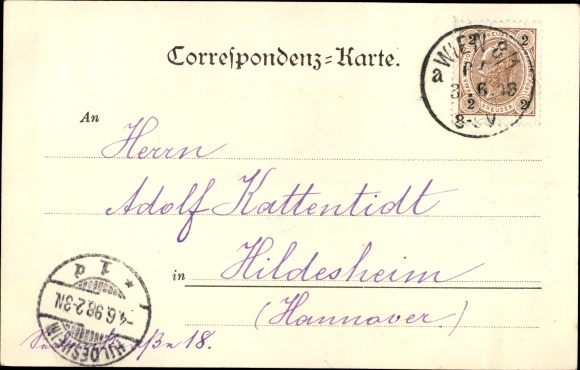 Correspondenz=Karte.
WIEN 8/1
a
3.6.98
8-9V
2 KREUZER 2
2 KREUZER 2
An
Herrn
Adolf Kattentidt
in Hildesheim
(Hannover)
18.
HILDESHEIM
* 1 d
-4.6.98.2-3N.